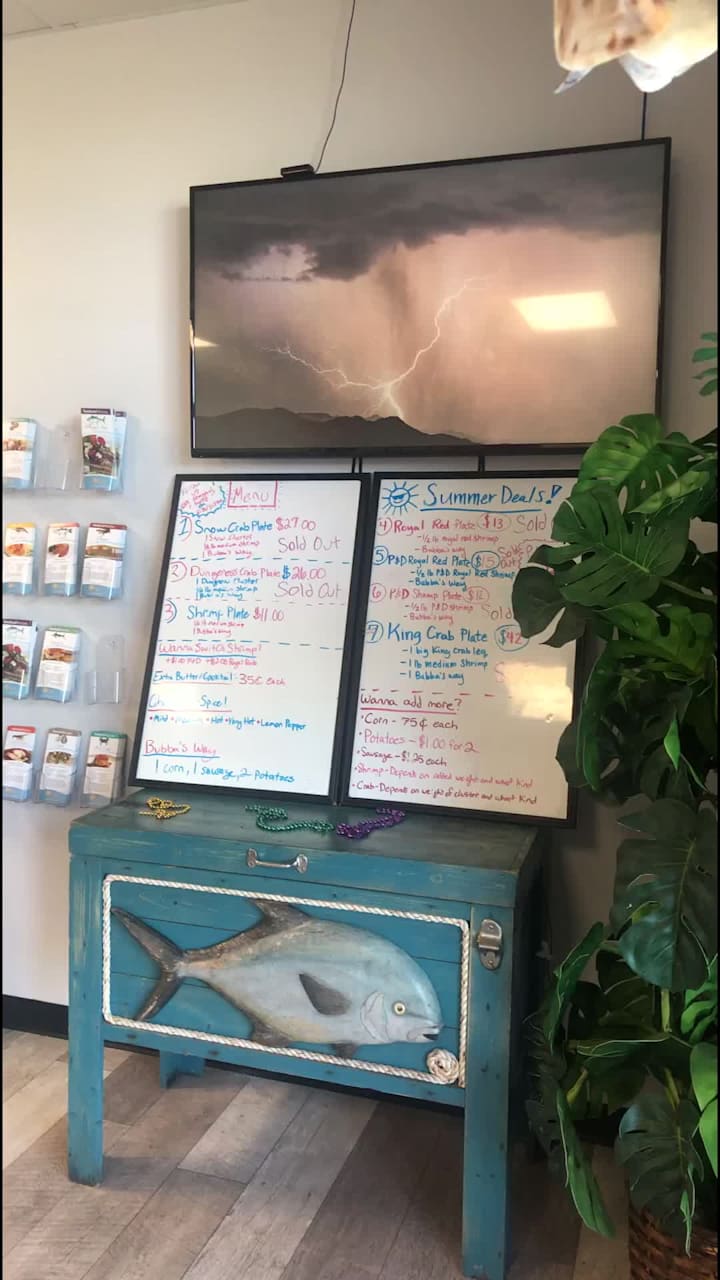 Menu
1) Snow Crab Plate $27.00
1 Snow Cluster
½ lb medium shrimp
1 Bubba's Way
Sold Out
2) Dungeness Crab Plate $26.00
1 Dungeness Cluster
½ lb medium shrimp
1 Bubba's Way
Sold Out
3) Shrimp Plate $11.00
1 Bubba's Way
Wanna Switch Shrimp?
Extra Butter/Cocktail: 35¢ each
Spice!
•Mild •Hot •Very Hot •Lemon Pepper
Bubba's Way
1 corn, 1 sausage, 2 potatoes
Summer Deals!
4) Royal Red Plate $13 Sold
-½ lb royal red shrimp
-Bubba's way
5) P&D Royal Red Plate $15 Sold Out
-½ lb P&D Royal Red Shrimp
-Bubba's Way
6) P&D Shrimp Plate $12
-½ lb P&D shrimp Sold
-Bubba's way
7) King Crab Plate $42
-1 big King crab leg
-1 lb medium shrimp
-1 Bubba's way
Wanna add more?
•Corn - 75¢ each
•Potatoes - $1.00 for 2
•Sausage - $1.25 each
•Shrimp - Depends on added weight and what Kind
•Crab - Depends on weight of cluster and what Kind